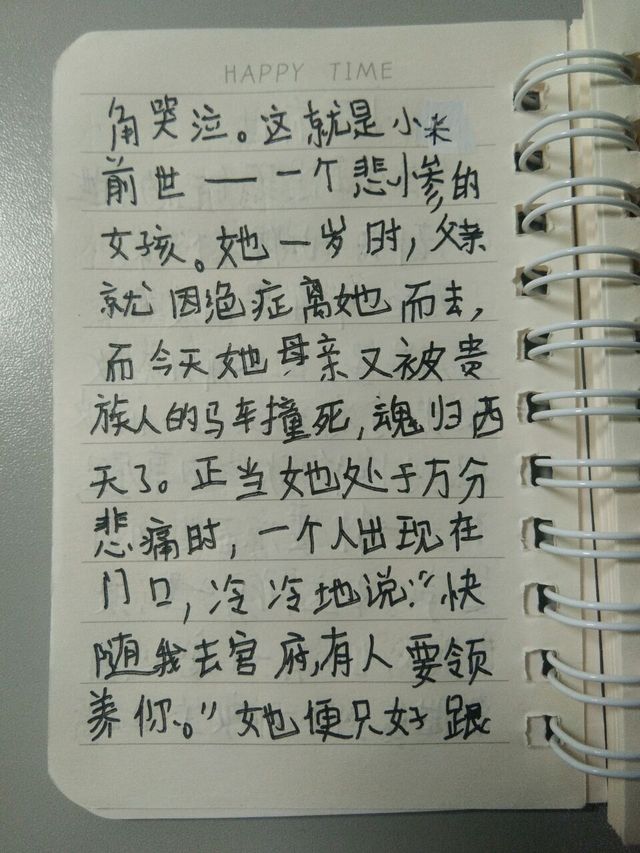 HAPPY TIME
角哭泣。这就是小米
前世——一个悲惨的
女孩。她一岁时，父亲
就因绝症离她而去，
而今天她母亲又被贵
族人的马车撞死，魂归西
天了。正当她处于万分
悲痛时，一个人出现在
门口，冷冷地说：“快
随我去官府，有人要领
养你。”她便只好跟